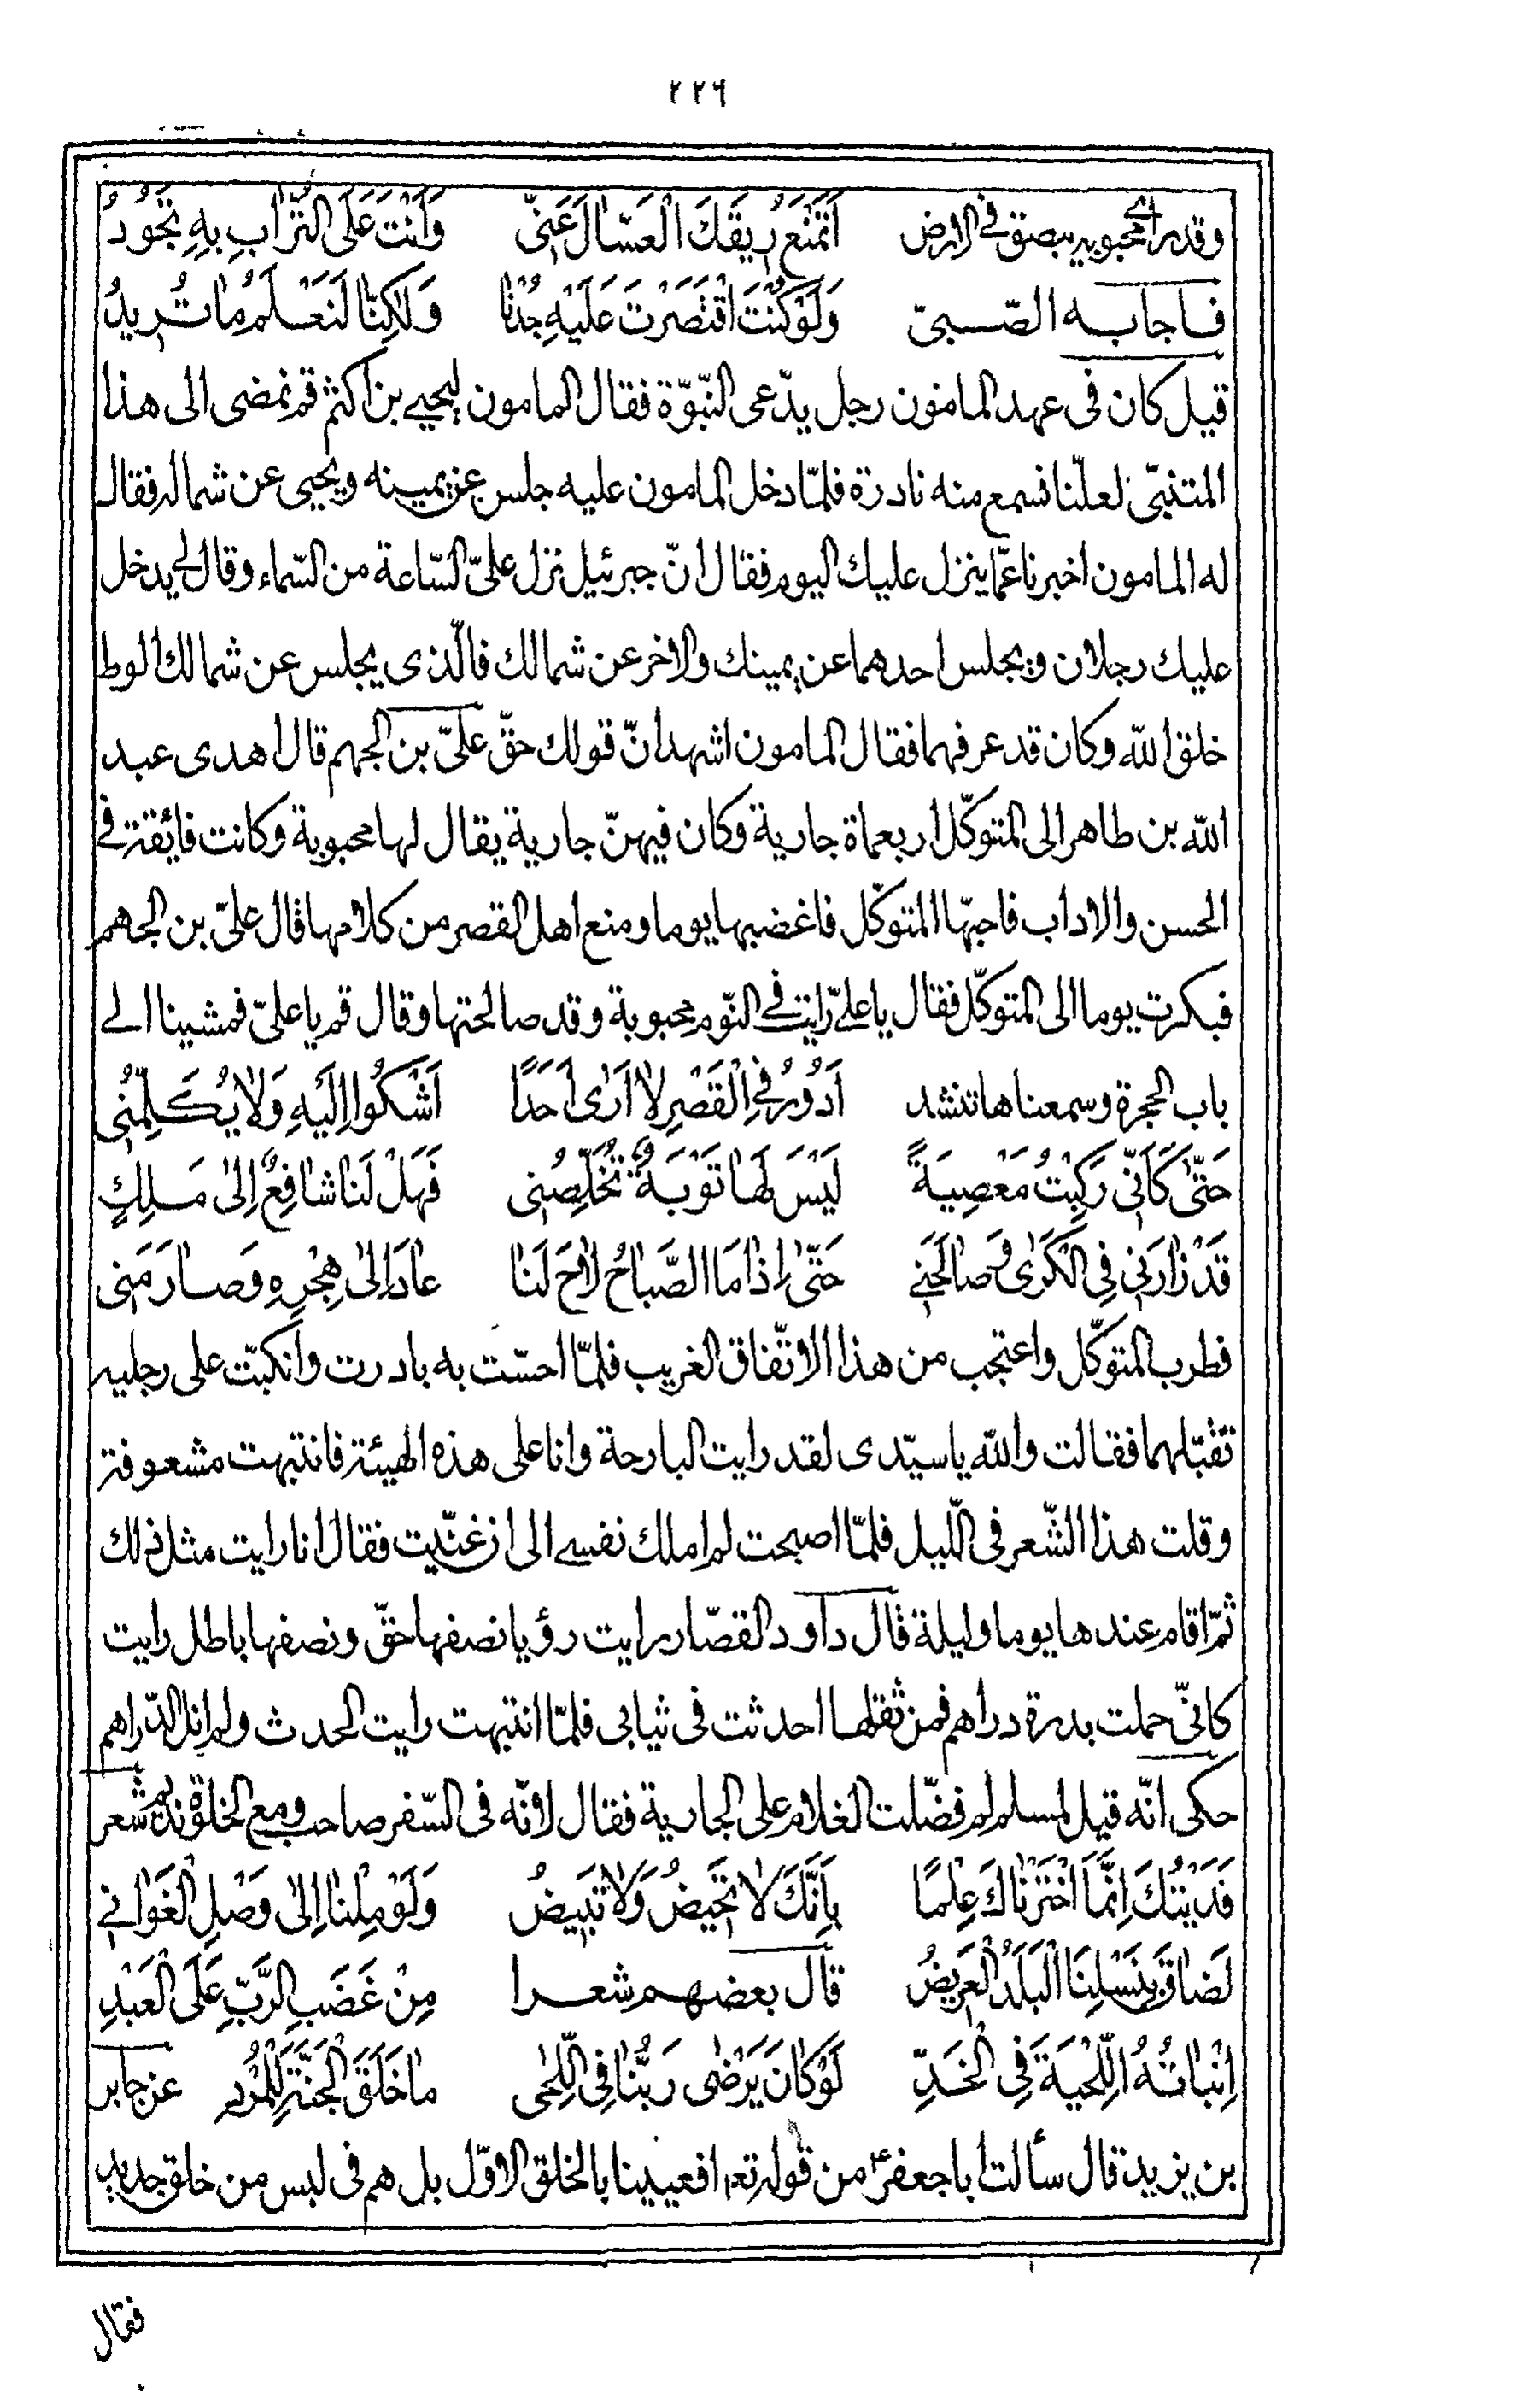 ٢٢٦
وقد راى محبوبه يبصق فى الارض اَتَمْنَعُ رِيقَكَ الْعَسَّالَ عَنّى وَاَنْتَ عَلَى التُّرابِ بِهِ تَجُودُ
فاجابه الصّبىّ وَلَوْ كُنْتَ اقْتَصَرْتَ عَلَيْهِ جُدْنا وَلٰكِنّا لَنَعْلَمُ ما تُرِيدُ
قيل كان فى عهد المامون رجل يدّعى النّبوّة فقال المامون ليحيى بن اكثم قم نمضى الى هذا
المتنبّى لعلّنا نسمع منه نادرة فلمّا دخل المامون عليه جلس عن يمينه ويحيى عن شماله فقال
له المامون اخبرنا عمّا ينزل عليك اليوم فقال انّ جبرئيل نزل علىّ السّاعة من السّماء وقال لى يدخل
عليك رجلان ويجلس احدهما عن يمينك والاخر عن شمالك فالّذى يجلس عن شمالك الوط
خلق الله وكان قد عرفهما فقال المامون اشهد انّ قولك حقّ علىّ بن الجهم قال اهدى عبد
الله بن طاهر الى المتوكّل اربعماة جارية وكان فيهنّ جارية يقال لها محبوبة وكانت فايقة فى
الحسن والاداب فاحبّها المتوكّل فاغضبها يوما ومنع اهل القصر من كلامها قال علىّ بن الجهم
فبكرت يوما الى المتوكّل فقال يا علىّ رايت فى النّوم محبوبة وقد صالحتها وقال قم يا علىّ فمشينا الى
باب الحجرة وسمعناها تنشد اَدُورُ فِى الْقَصْرِ لا اَرٰى اَحَدًا اَشْكُوا اِلَيْهِ وَلا يُكَلِّمُنى
حَتّٰى كَاَنّى رَكِبْتُ مَعْصِيَةً لَيْسَ لَها تَوْبَةٌ تُخَلِّصُنى فَهَلْ لَنا شافِعٌ اِلٰى مَلِكٍ
قَدْ زارَنى فِى الْكَرٰى وَصالَحَنى حَتّٰى اِذا مَا الصَّباحُ لاحَ لَنا عادَ اِلٰى هِجْرِهِ وَصارَمَنى
فطرب المتوكّل واعتجب من هذا الاتّفاق الغريب فلمّا احسّت به بادرت وانكبّت على رجليه
تقبّلهما فقالت والله يا سيّدى لقد رايت البارحة وانا على هذه الهيئة فانتبهت مشعوفة
وقلت هذا الشّعر فى اللّيل فلمّا اصبحت لم املك نفسى الى ان غنّيت فقال انا رايت مثل ذلك
ثمّ اقام عندها يوما وليلة قال داود القصّار رايت رؤيا نصفها حقّ ونصفها باطل رايت
كانّى حملت بدرة دراهم فمن ثقلها احدثت فى ثيابى فلمّا انتبهت رايت الحدث ولم ار الدّراهم
حكى انّه قيل لمسلم لم فضّلت الغلام على الجارية فقال لانّه فى السّفر صاحب ومع الخلوّة نديم شعر
فَدَيْتُكَ اِنَّمَا اخْتَرْناكَ عِلْمًا بِاَنَّكَ لا تَحِيضُ وَلا تَبِيضُ وَلَوْ مِلْنا اِلٰى وَصْلِ الْغَوانى
لَضاقَ بِنَسْلِنَا الْبَلَدُ الْعَرِيضُ قال بعضهم شعرا مِنْ غَضَبِ الرَّبِّ عَلَى الْعَبْدِ
اِنْباتُهُ اللِّحْيَةَ فِى الْخَدِّ لَوْ كانَ يَرْضٰى رَبُّنا فِى اللِّحٰى ما خَلَقَ الْجَنَّةَ لِلْمُرْدِ عن جابر
بن يزيد قال سألت ابا جعفرؑ من قوله تعـ افعيينا بالخلق الاوّل بل هم فى لبس من خلق جديد
فقال